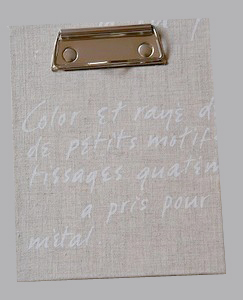 Color et rayé d
de petits motif
tissages quatern
a pris pour
métal